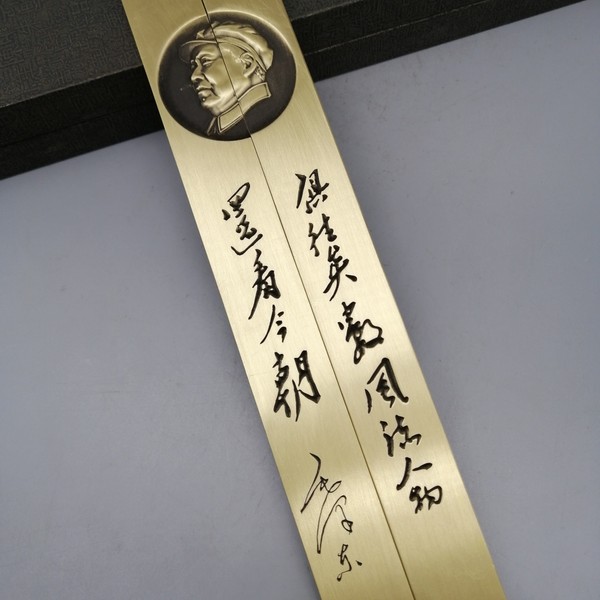 俱往矣數風流人物
還看今朝
毛泽东